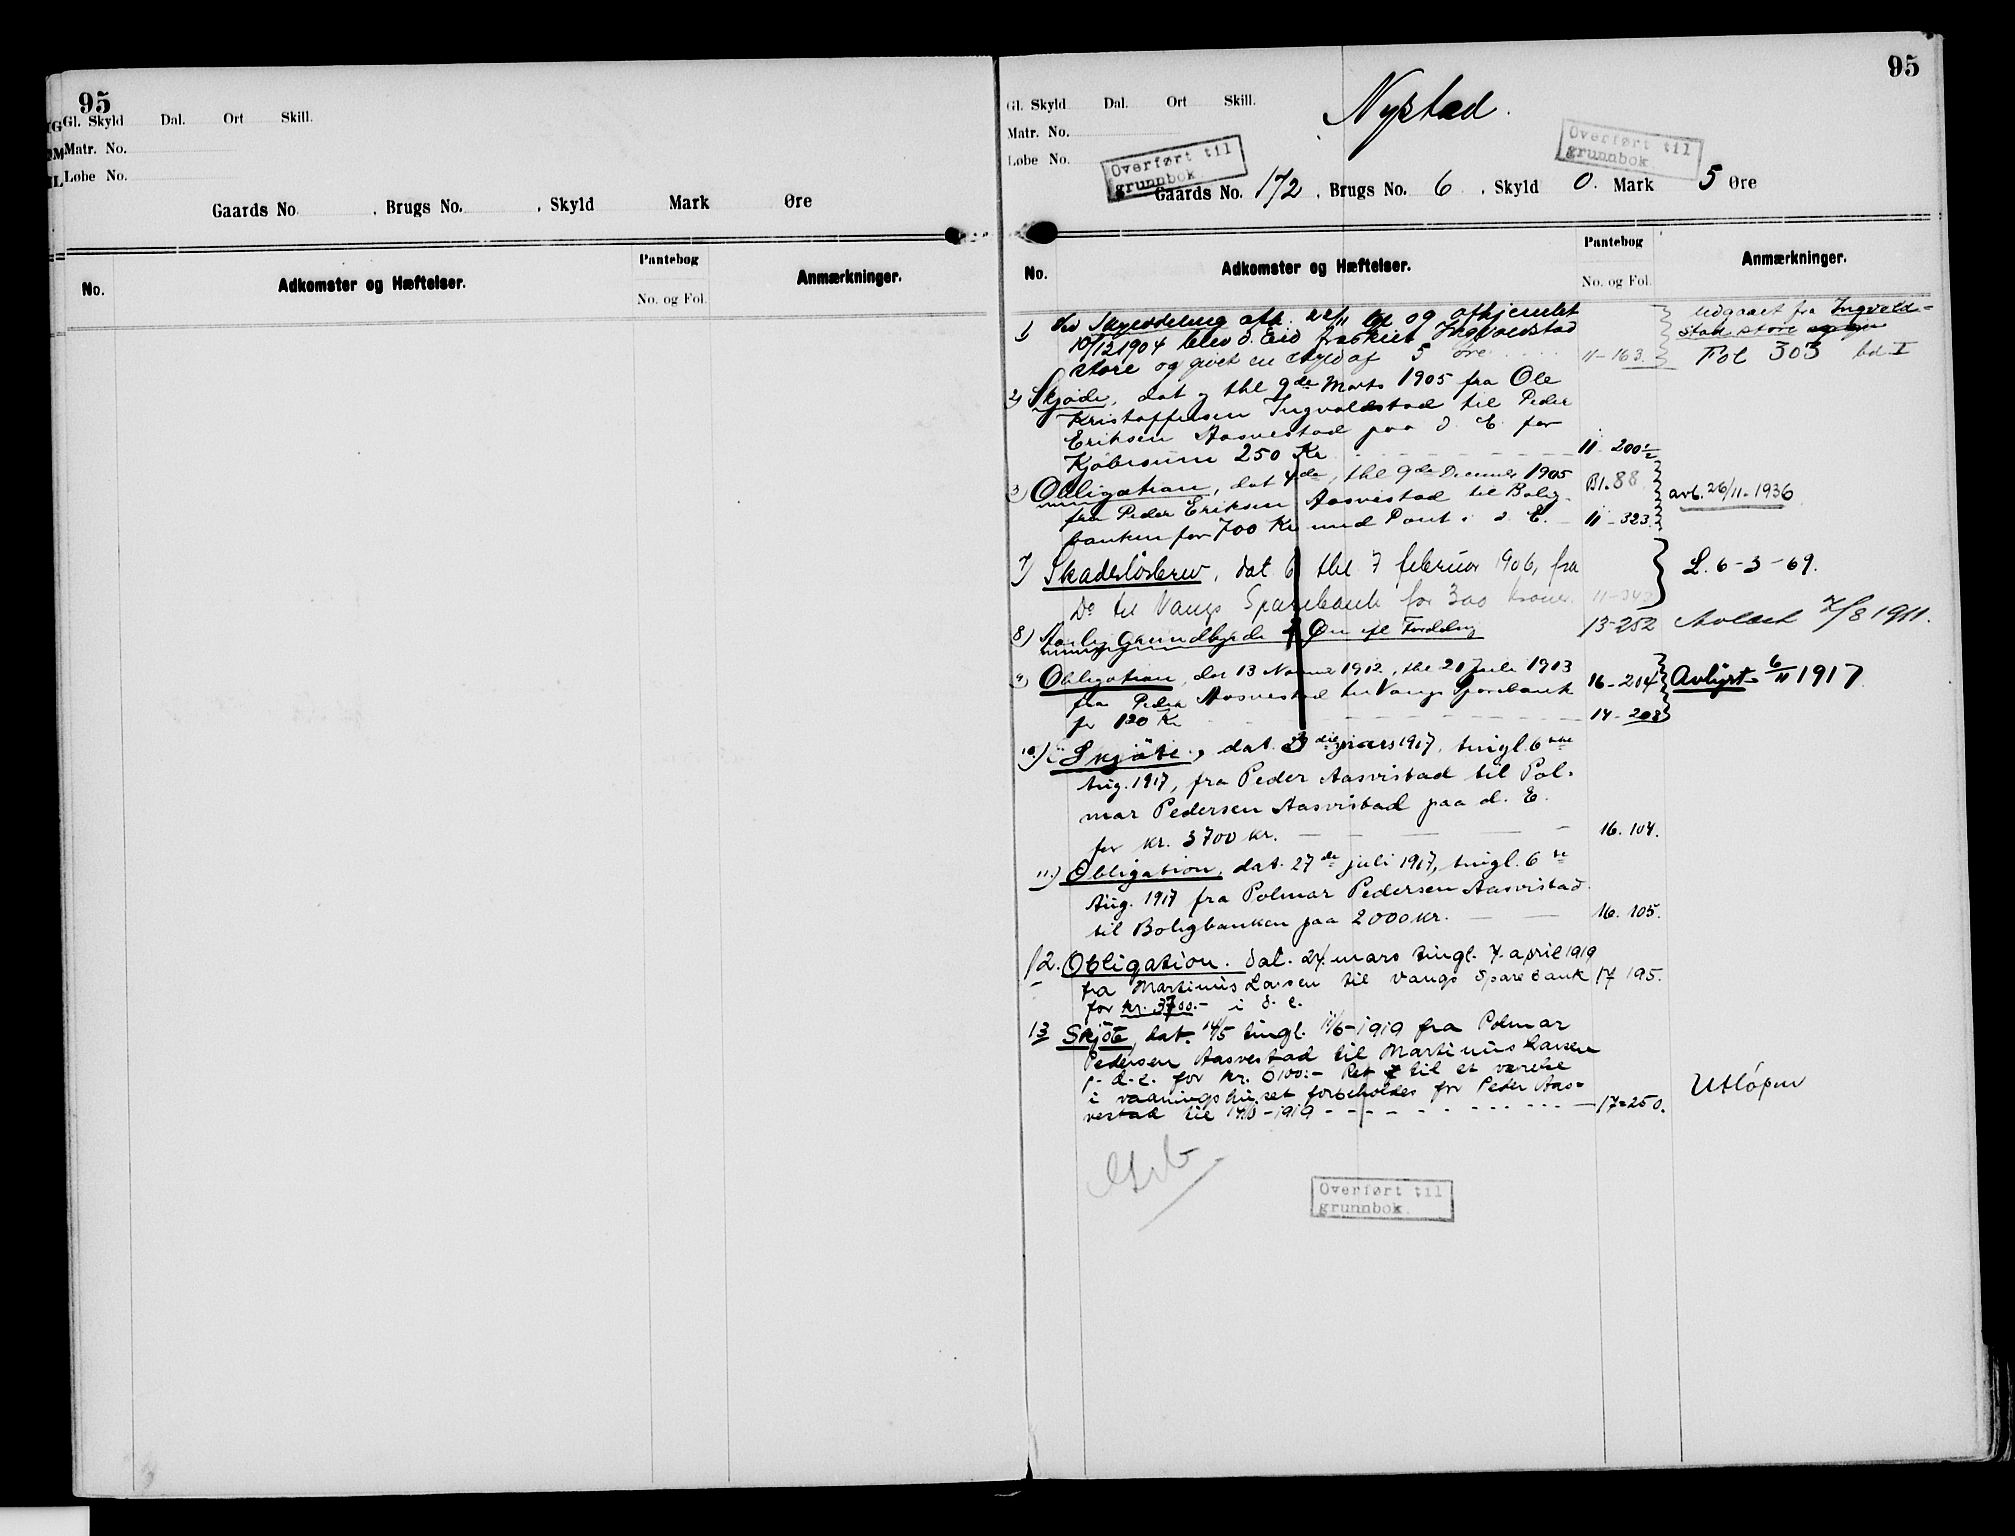 95
Gl. Skyld Dal. Ort Skill.
Matr. No.
Løbe No.
Gaards No. , Brugs No. , Skyld Mark Øre
No. Adkomster og Hæftelser. Pantebog No. og Fol. Anmærkninger.
95
Nystad.
Gl. Skyld Dal. Ort Skill.
Matr. No.
Løbe No.
Overført til
grunnbok
Overført til
grunnbok.
Gaards No. 172, Brugs No. 6, Skyld 0. Mark 5 Øre
No. Adkomster og Hæftelser. Pantebog No. og Fol. Anmærkninger.
1) Ved Skylddeling afh. 22/11 og afhjemlet udgaaet fra Ingvald-
10/12 1904 blev d. Eid fraskilt Ingvaldstad stad store
store og givet en skyld af 5 øre 11-163. Fol 303 bd. I
2) Skjøde, dat og thl 9de Marts 1905 fra Ole
Kristoffersen Ingvaldstad til Peder
Eriksen Aasvestad paa d. E. for
Kjøbesum 250 Kr. 11-200 1/2
3) Obligation, dat 4de, thl 9de December 1905 Bl. 88
fra Peder Eriksen Aasvestad til Bolig- avl. 26/11-1936
banken for 700 Kr med Pant i d. E. 11-323.
7) Skadesløsbrev, dat 6 thl 7 februar 1906, fra L. 6-3-69.
Do til Vangs Sparebank for 300 kroner. 11-343
8) Aarlig Grundbyrde 4 Øre ifl Fordeling 13-252 Avlæst 7/8 1911.
9) Obligation, dat 13 Novemb 1912, thl 21 Juli 1913 16-204 Avlyst 6/11 1917
fra Peder Aasvestad til Vangs Sparebank
for 120 Kr 14-208
10.) Skjøte, dat. 3die mars 1917, tingl. 6te
Aug. 1917, fra Peder Aasvistad til Pol-
mar Pedersen Aasvistad paa d. E.
for kr. 3700 kr. 16. 104.
11.) Obligation, dat. 27de juli 1917, tingl. 6te
Aug. 1917 fra Polmar Pedersen Aasvistad
til Boligbanken paa 2000 kr. 16. 105.
12. Obligation. dat. 24. mars tingl. 7. april 1919
fra Martinus Larsen til Vangs Sparebank 17 195.
for kr. 3700.- i d. e.
13 Skjøte, dat. 14/5 tingl. 11/6-1919 fra Polmar
Pedersen Aasvestad til Martinus Larsen
p. d. e. for kr. 6100:- Ret til et værelse
i vaaningshuset forbeholdes for Peder Aas- Utløpen
vestad til 14/10-1919 17=250.
Overført til
grunnbok.